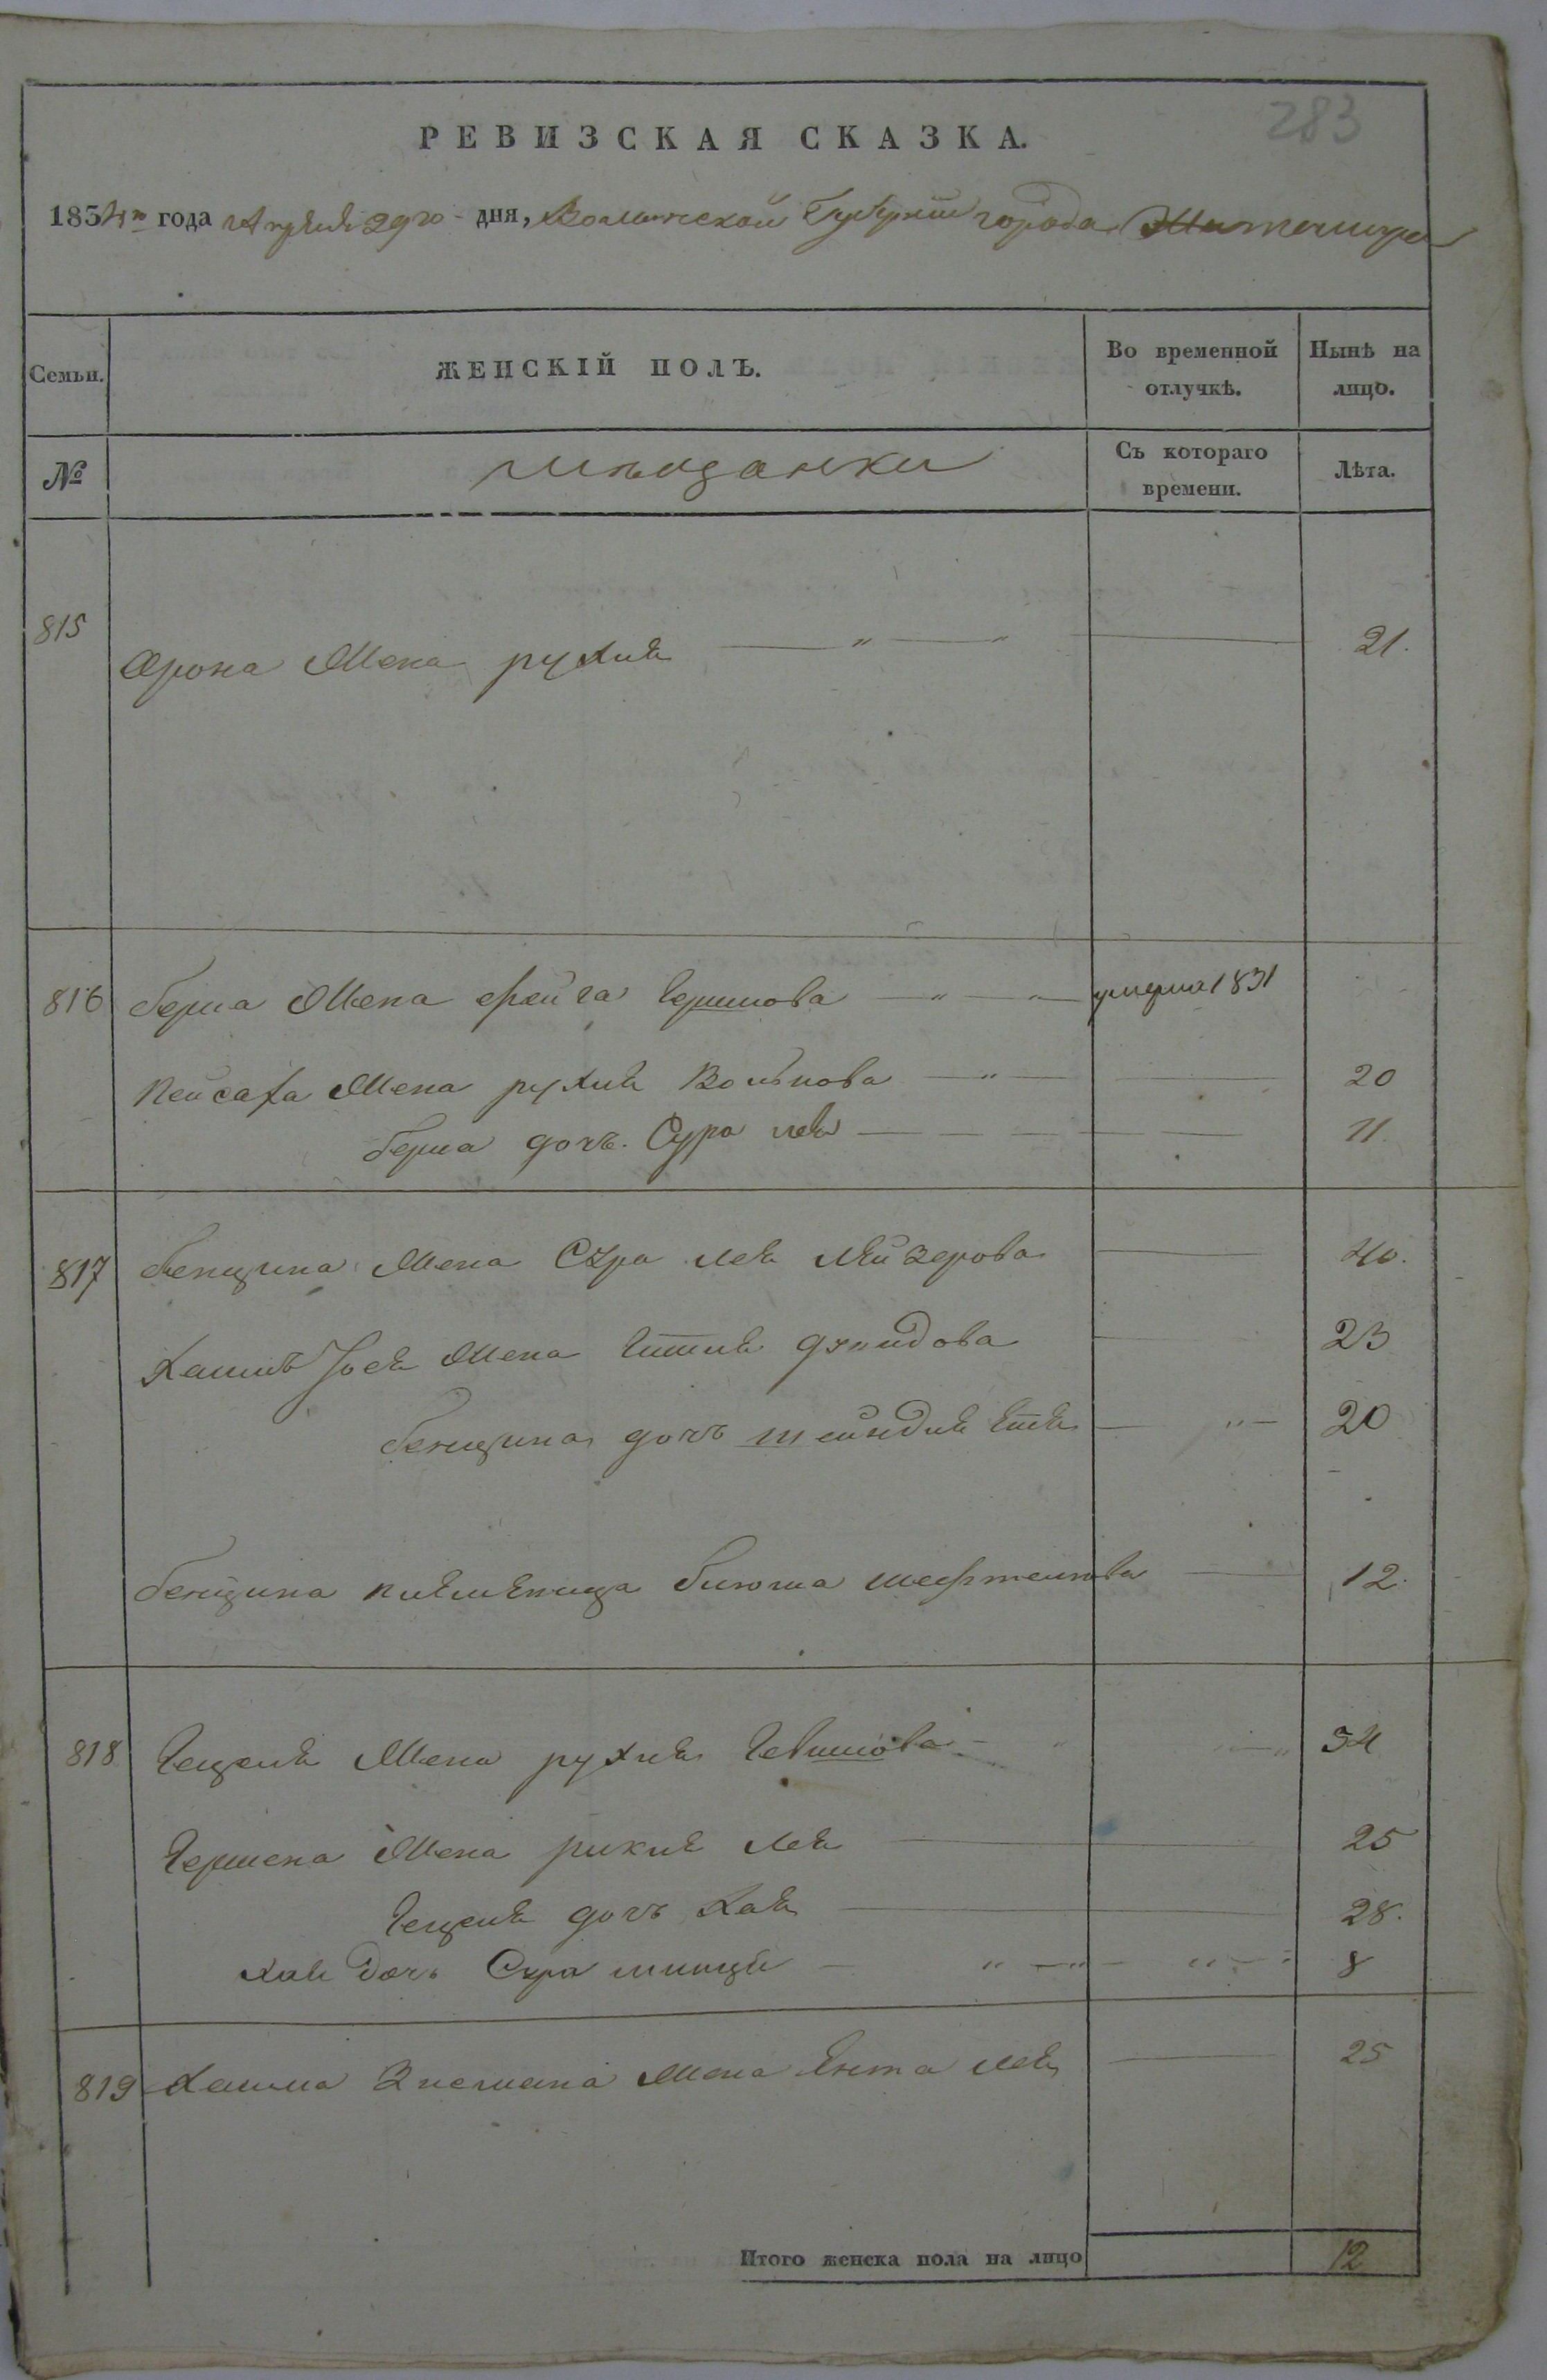 283
РЕВИЗСКАЯ СКАЗКА.
1834го года Апреля 29го дня, Волынской Губернии города Житомира
Семьи. ЖЕНСКІЙ ПОЛЪ. Во временной отлучкѣ. Нынѣ на лицо.
№ мѣщанки Съ котораго времени. Лѣта.
815 Арона Жена рухля — " — " 21.
816 Берка Жена фейга Гершкова — " — " — умерла 1831
Пейсаха Жена рухля Волькова — " — 20
Берка дочь Сура лея — — — 11.
817 Бенциона Жена Сура лея лейзерова 40.
Жена давидова 23
Бенциона дочь шейндля — " — 20
Бенциона племяница блюма 12.
818 Гецеля Жена рухля — " — " 34
Гершона Жена рикля лея 25
Гецеля дочь хая 28.
хаи дочь Сура — " — " — " — 8
819 Жена Ента лея 25
Итого женска пола на лицо 12